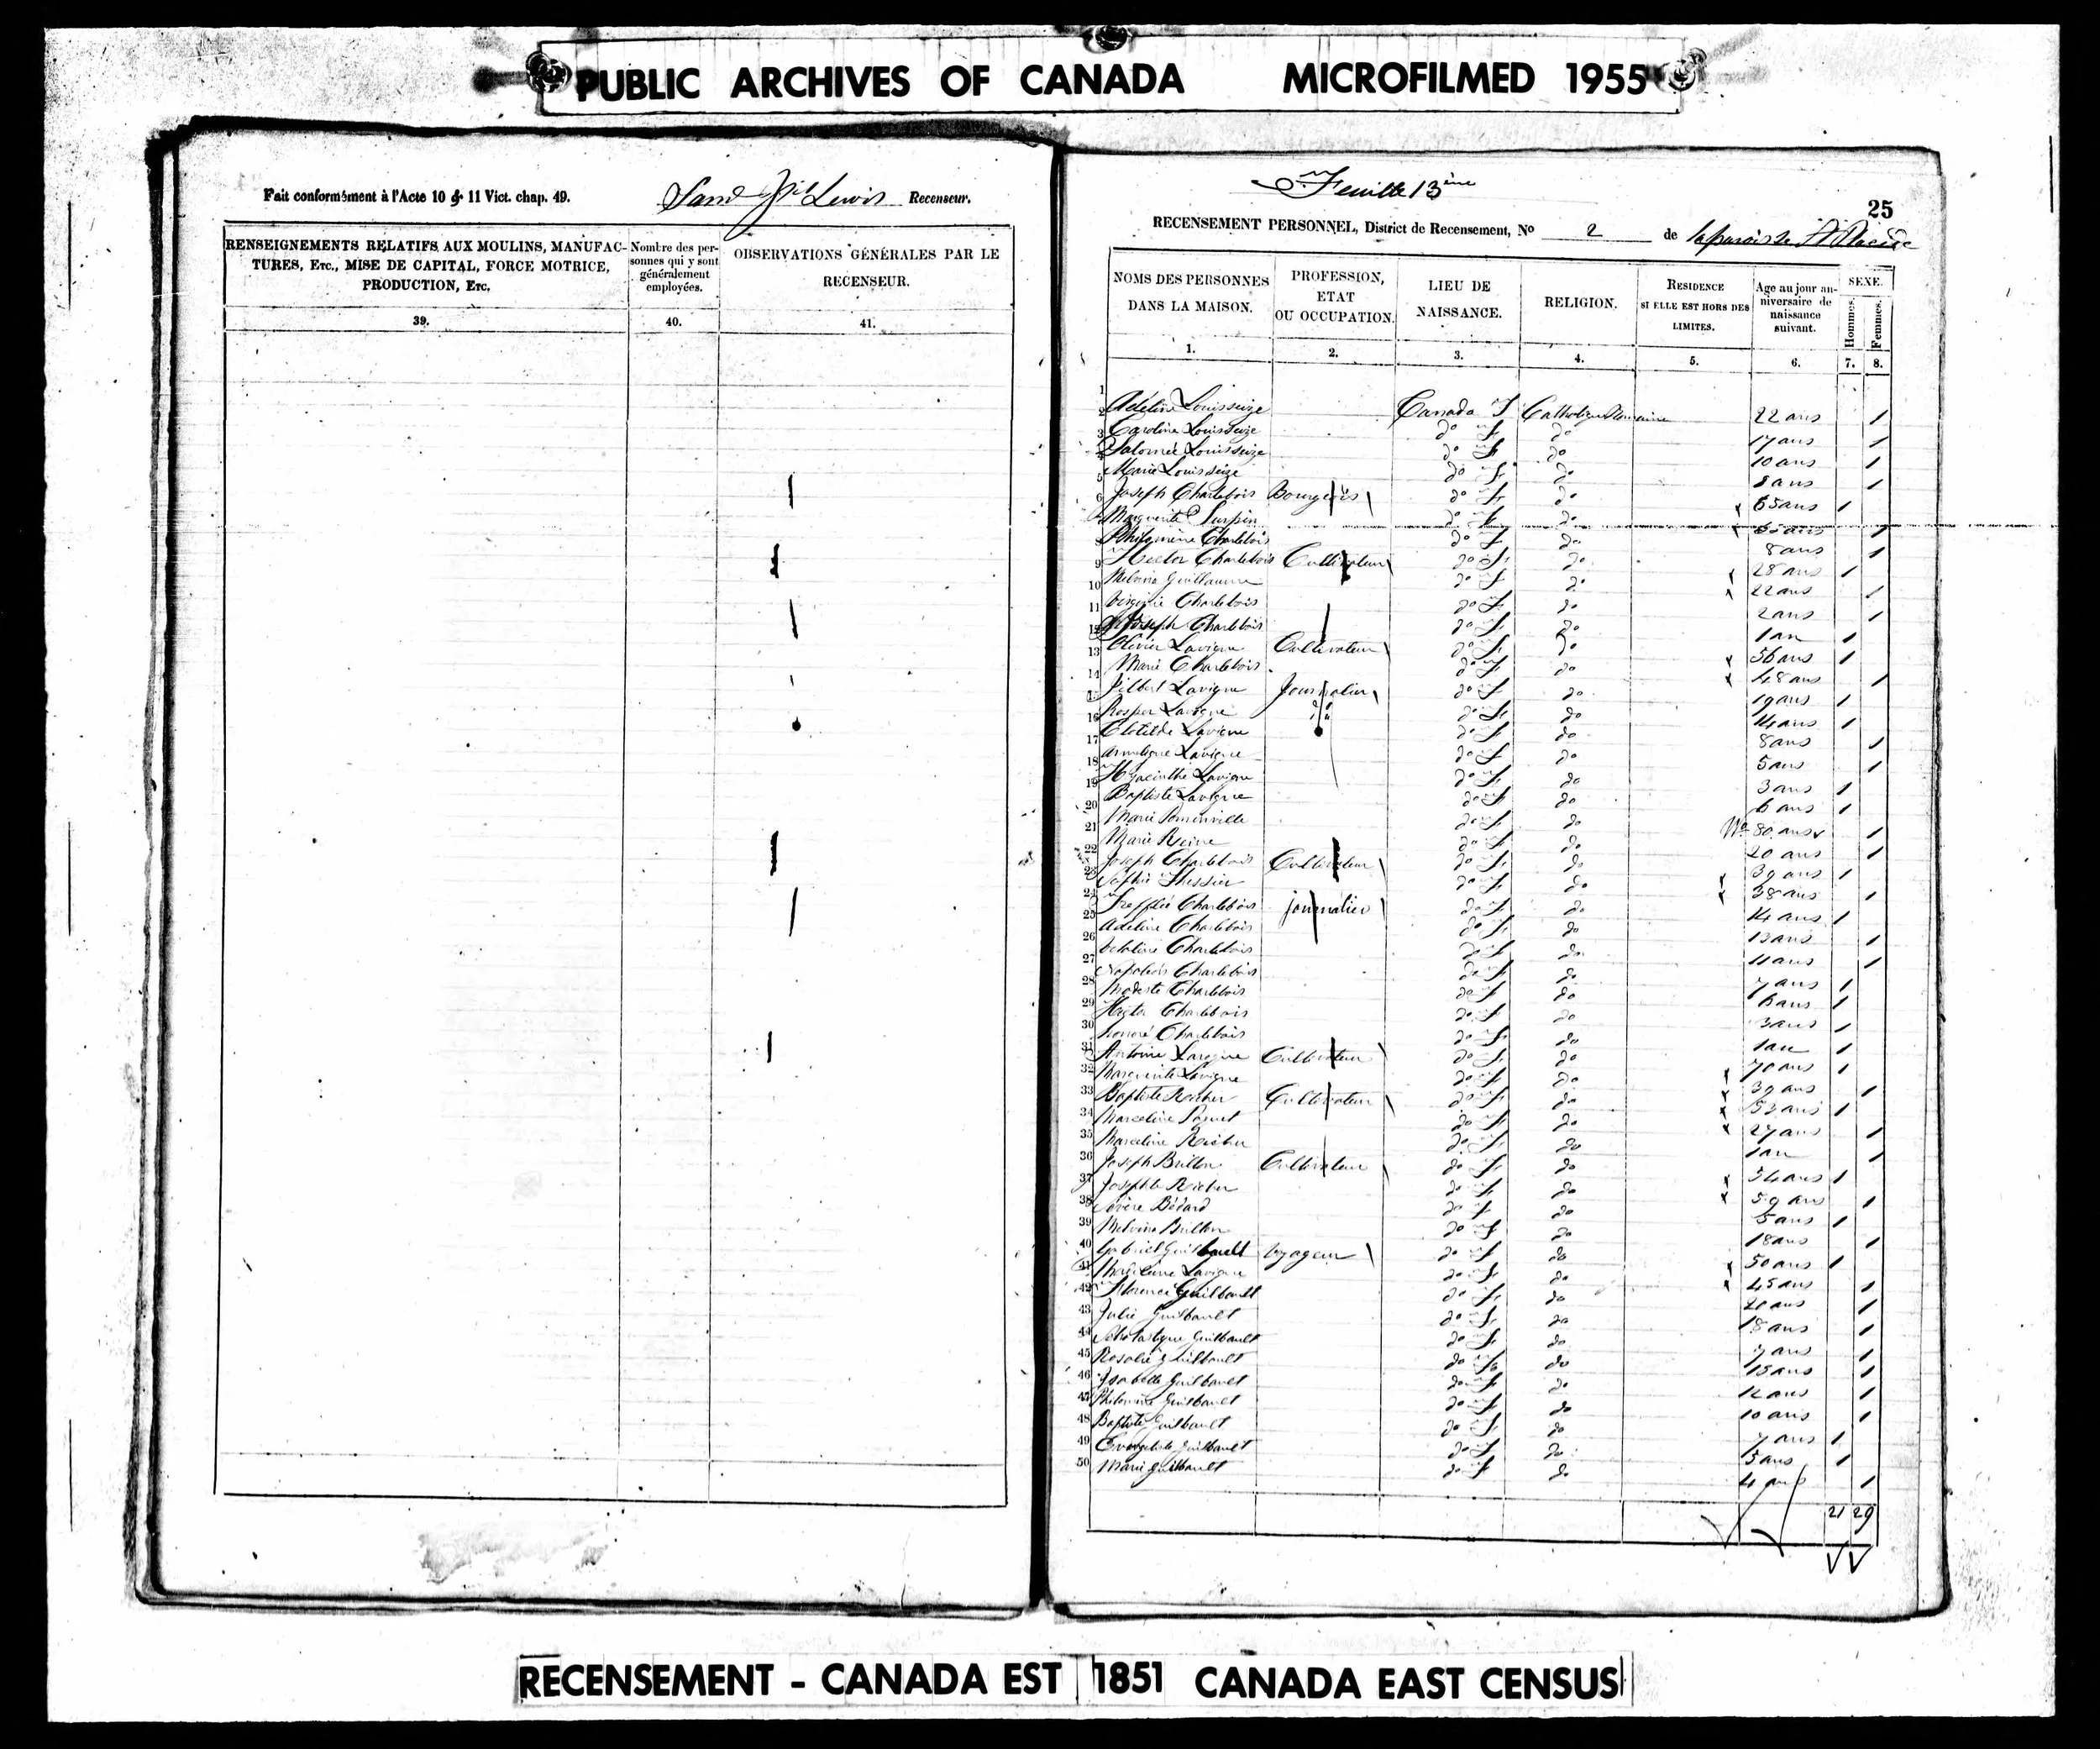 PUBLIC ARCHIVES OF CANADA MICROFILMED 1955
Fait conformément à l'Acte 10 & 11 Vict. chap. 49. Lewis Recenseur.
RENSEIGNEMENTS RELATIFS AUX MOULINS, MANUFAC-
TURES, Etc., MISE DE CAPITAL, FORCE MOTRICE,
PRODUCTION, Etc.
Nombre des per-
sonnes qui y sont
généralement
employées.
OBSERVATIONS GÉNÉRALES PAR LE
RECENSEUR.
39. 40. 41.
Feuille 13ème
25
RECENSEMENT PERSONNEL, District de Recensement, No 2 de la paroisse St Placide
NOMS DES PERSONNES
DANS LA MAISON.
PROFESSION,
ETAT
OU OCCUPATION.
LIEU DE
NAISSANCE.
RELIGION.
RESIDENCE
SI ELLE EST HORS DES
LIMITES.
Age au jour an-
niversaire de
naissance
suivant.
SEXE.
Hommes.
Femmes.
1. 2. 3. 4. 5. 6. 7. 8.
1 Adéline Louisseize Canada F Catholique Romaine 22 ans 1
2 Caroline Louisseize do F do 17 ans 1
3 Salomée Louisseize do F do 10 ans 1
4 Marie Louisseize do F do 8 ans 1
5 Joseph Charlebois Bourgeois do F do 65 ans 1
6 Marguerite do F do 65 ans 1
7 Philomène Charlebois do F do 8 ans 1
8 Hector Charlebois Cultivateur do F do 28 ans 1
9 Melvina Guillaume do F do 22 ans 1
10 Virginie Charlebois do F do 2 ans 1
11 Joseph Charlebois do F do 1 an 1
12 Olivier Lavigne Cultivateur do F do 56 ans 1
13 Marie Charlebois do F do 48 ans 1
14 Jilbert Lavigne Journalier do F do 19 ans 1
15 Prosper Lavigne do do F do 14 ans 1
16 Clotilde Lavigne do F do 8 ans 1
17 Lavigne do F do 5 ans 1
18 Hyacinthe Lavigne do F do 3 ans 1
19 Baptiste Lavigne do F do 6 ans 1
20 Marie do F do 80 ans 1
21 Marie Reine do F do 20 ans 1
22 Joseph Charlebois Cultivateur do F do 39 ans 1
23 Sophie do F do 38 ans 1
24 Trefflée Charlebois journalier do F do 14 ans 1
25 Adéline Charlebois do F do 13 ans 1
26 Charlebois do F do 11 ans 1
27 Napoléon Charlebois do F do 7 ans 1
28 Modeste Charlebois do F do 6 ans 1
29 Charlebois do F do 3 ans 1
30 Honoré Charlebois do F do 1 an 1
31 Antoine Lavigne Cultivateur do F do 70 ans 1
32 Marguerite Lavigne do F do 39 ans 1
33 Baptiste Richer Cultivateur do F do 53 ans 1
34 Marceline Paquet do F do 27 ans 1
35 Marceline Richer do F do 1 an 1
36 Joseph Cultivateur do F do 54 ans 1
37 Josephte Richer do F do 59 ans 1
38 Bédard do F do 5 ans 1
39 Melvina do F do 18 ans 1
40 Gabriel Guilbault Voyageur do F do 50 ans 1
41 Lavigne do F do 45 ans 1
42 Florence Guilbault do F do 20 ans 1
43 Julie Guilbault do F do 18 ans 1
44 Scholastique Guilbault do F do 1
45 Rosalie Guilbault do F do 15 ans 1
46 Isabelle Guilbault do F do 12 ans 1
47 Philomène Guilbault do F do 10 ans 1
48 Baptiste Guilbault do F do 7 ans 1
49 Evangeliste Guilbault do F do 5 ans 1
50 Marie Guilbault do F do 4 ans 1
21 29
RECENSEMENT - CANADA EST 1851 CANADA EAST CENSUS